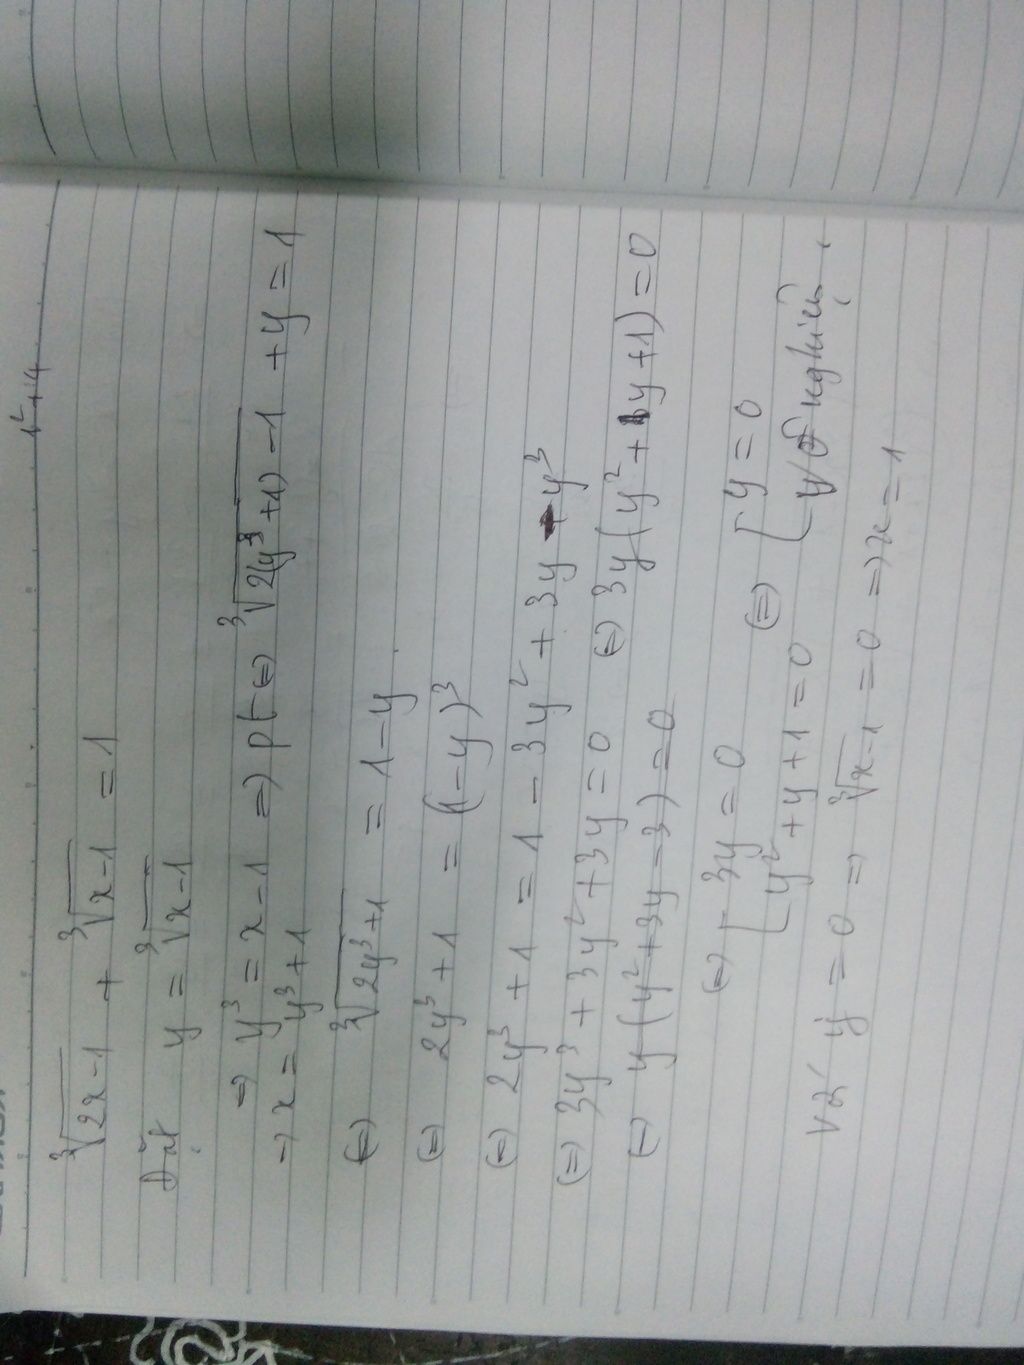 1² + 4
∛(2x-1) + ∛(x-1) = 1
Đặt y = ∛(x-1)
⇒ y³ = x - 1 ⇒ pt ⇔ ∛(2(y³+1)-1) + y = 1
⇒ x = y³ + 1
⇔ ∛(2y³+1) = 1 - y
⇔ 2y³ + 1 = (1 - y)³
⇔ 2y³ + 1 = 1 - 3y² + 3y - y³
⇔ 3y³ + 3y² + 3y = 0 ⇔ 3y(y² + y + 1) = 0
⇔ y(y² + 3y - 3) = 0
⇔ [ 3y = 0 ⇔ [ y = 0
y² + y + 1 = 0 Vô nghiệm.
Với y = 0 ⇒ ∛(x-1) = 0 ⇒ x = 1